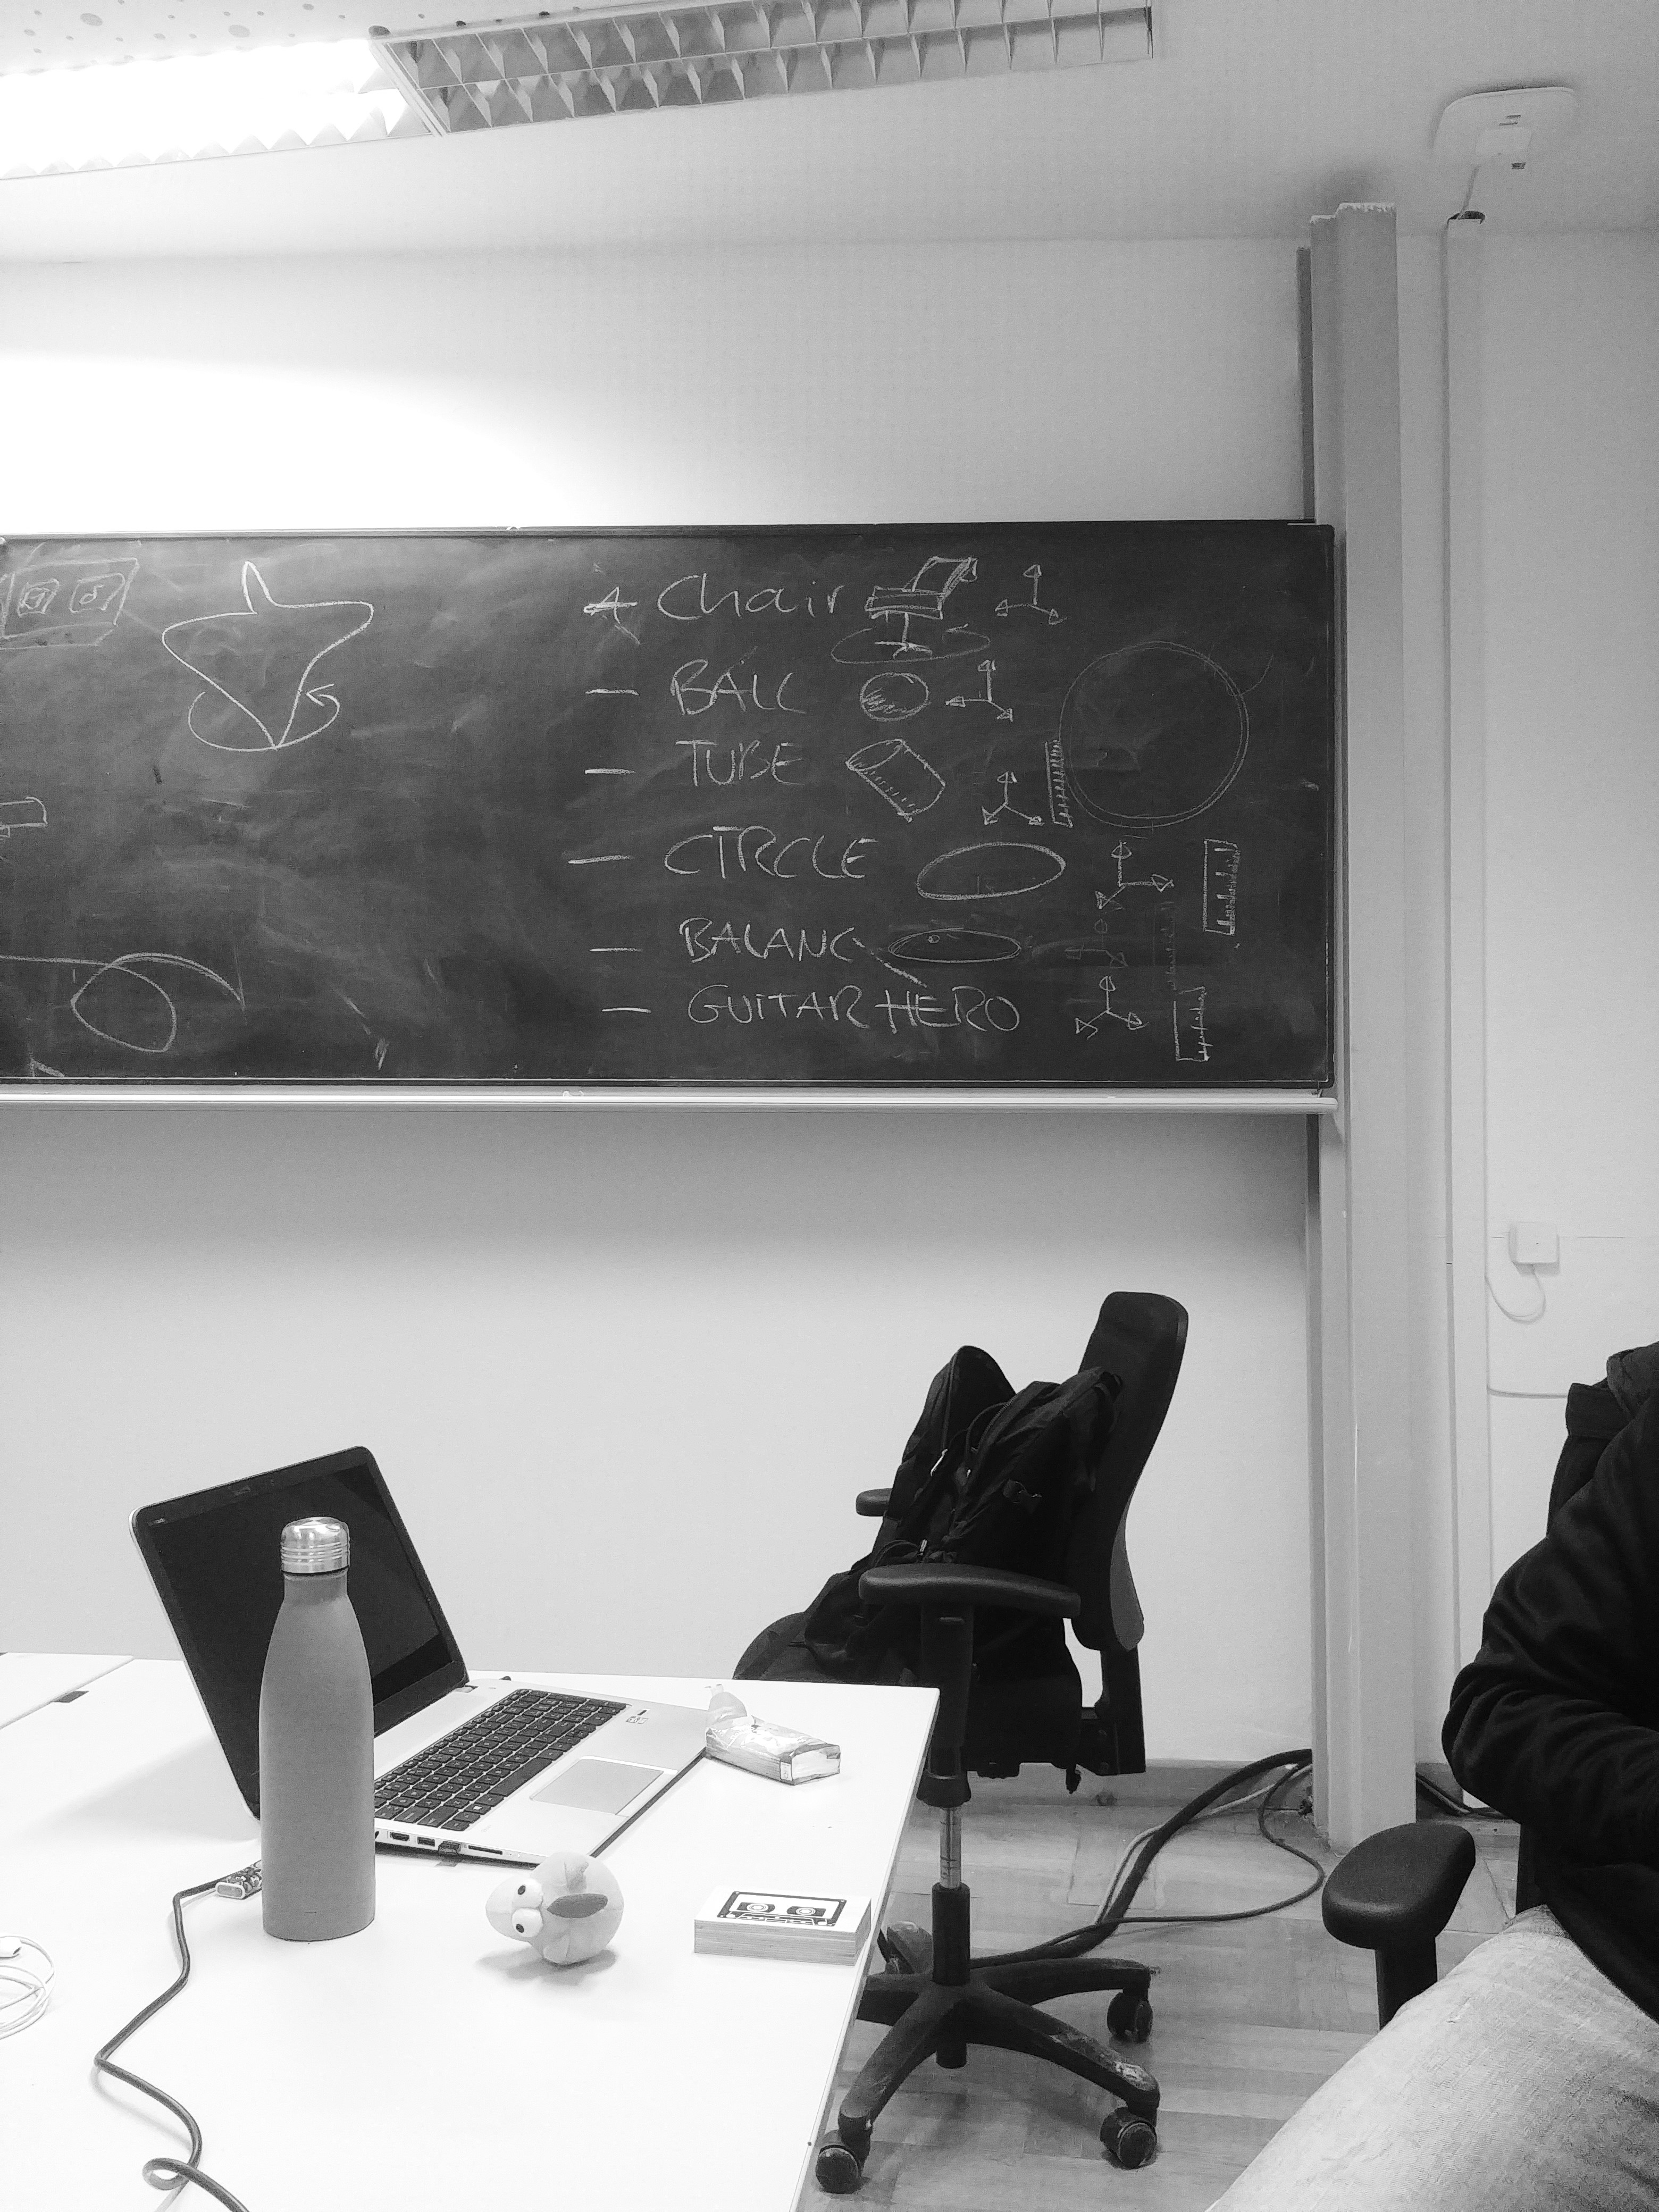 Chair
— BALL
— TUBE
— CIRCLE
— BALANC
— GUITAR HERO